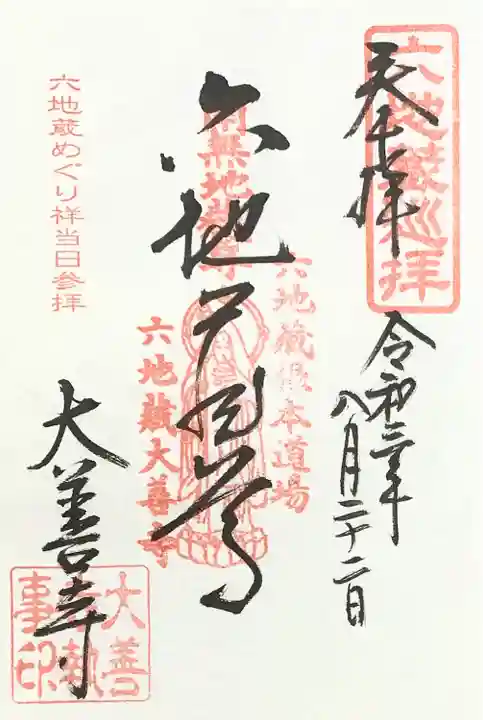 奉拝
六地蔵巡拝
令和三年
八月二十二日
六地蔵尊
南無地蔵尊
六地蔵根本道場
六地蔵大善寺
六地蔵めぐり祥当日参拝
大善寺
大善
寺執
事印